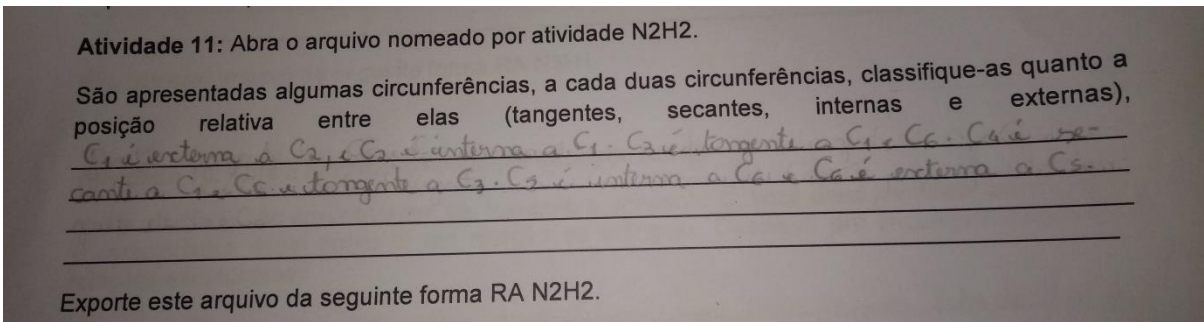 Atividade 11: Abra o arquivo nomeado por atividade N2H2.
São apresentadas algumas circunferências, a cada duas circunferências, classifique-as quanto a
posição relativa entre elas (tangentes, secantes, internas e externas),
C1 é externa á C2, e C2 é interna a C1. C3 é tangente a C1 e C6. C4 é se-
cante a C1 e C6 e tangente a C3. C5 é interna a C6 e C6 é externa a C5.
Exporte este arquivo da seguinte forma RA N2H2.